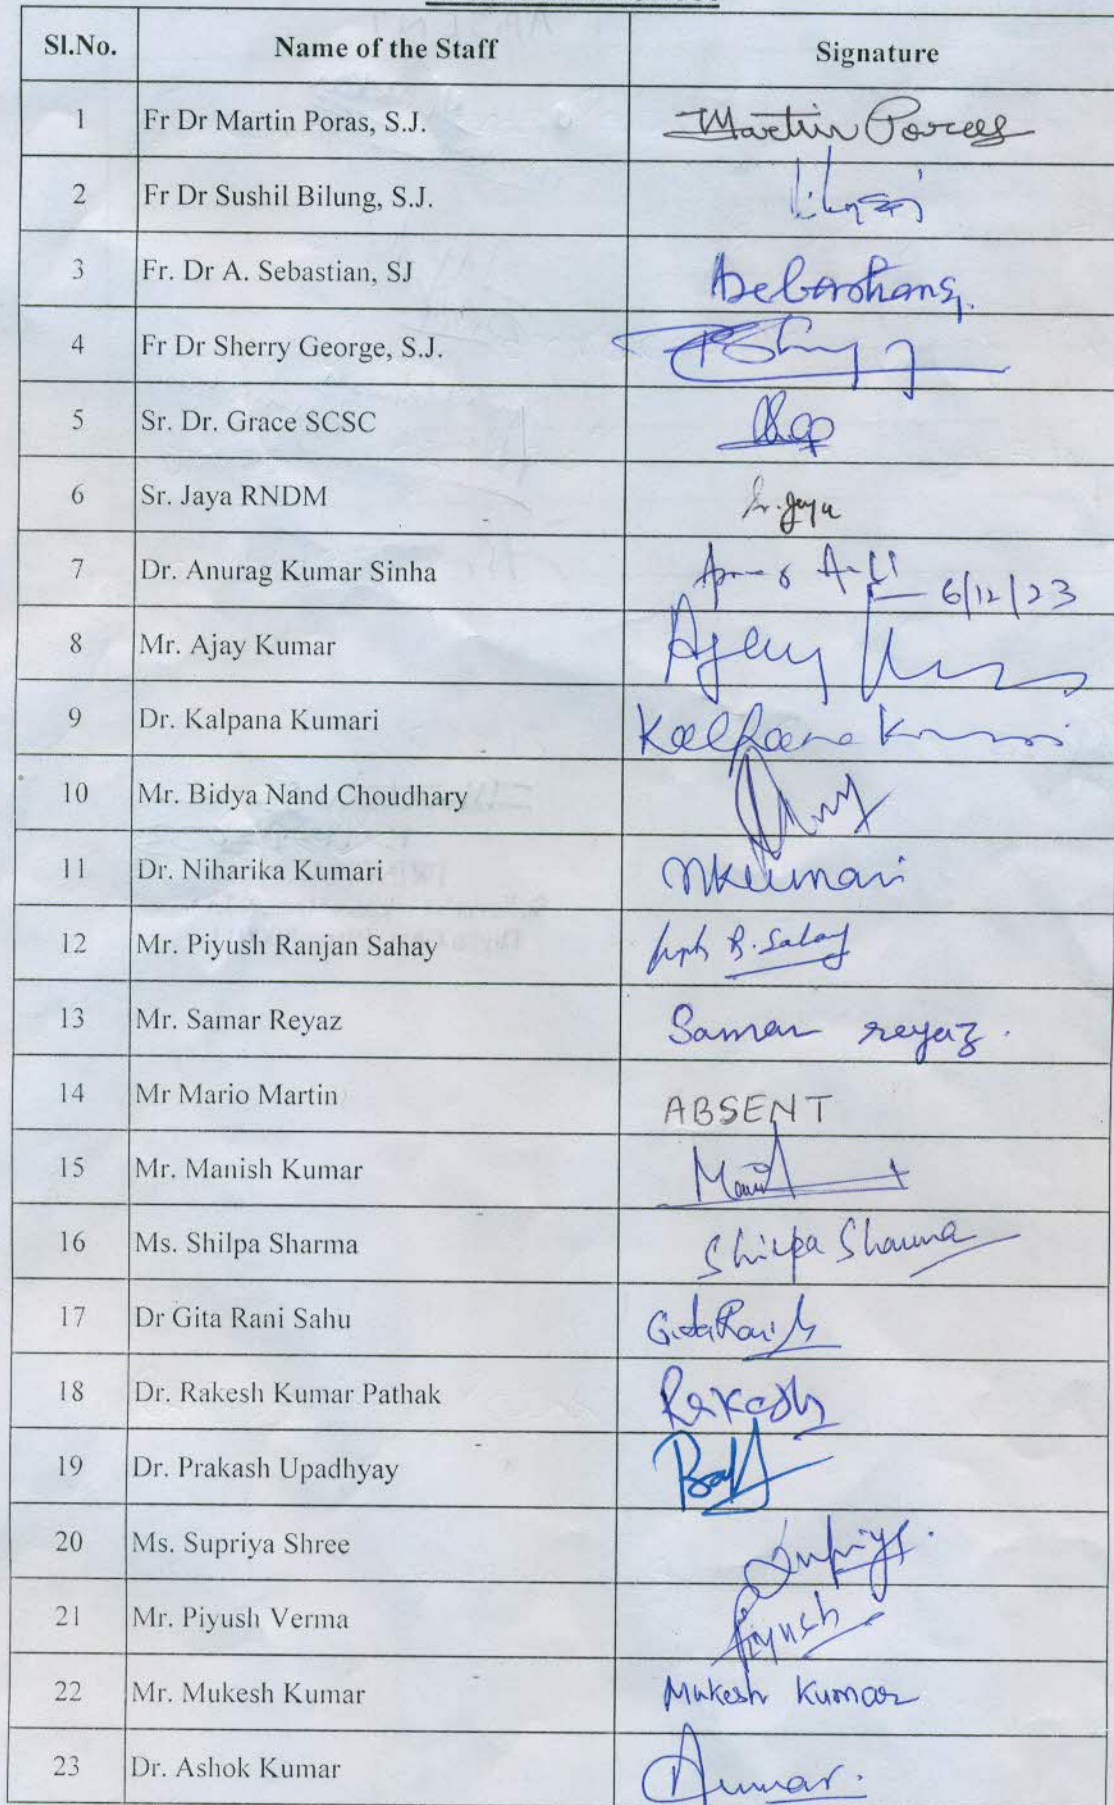 Sl.No. Name of the Staff Signature
1 Fr Dr Martin Poras, S.J. Martin Porees
2 Fr Dr Sushil Bilung, S.J.
3 Fr. Dr A. Sebastian, SJ
4 Fr Dr Sherry George, S.J.
5 Sr. Dr. Grace SCSC
6 Sr. Jaya RNDM Sr. Jaya
7 Dr. Anurag Kumar Sinha 6/12/23
8 Mr. Ajay Kumar Ajay
9 Dr. Kalpana Kumari Kalpana Kumari
10 Mr. Bidya Nand Choudhary
11 Dr. Niharika Kumari NKumari
12 Mr. Piyush Ranjan Sahay R. Sahay
13 Mr. Samar Reyaz Samar reyaz.
14 Mr Mario Martin ABSENT
15 Mr. Manish Kumar
16 Ms. Shilpa Sharma Shilpa Sharma
17 Dr Gita Rani Sahu Gita Rani
18 Dr. Rakesh Kumar Pathak Rakesh
19 Dr. Prakash Upadhyay
20 Ms. Supriya Shree Supriya.
21 Mr. Piyush Verma Piyush
22 Mr. Mukesh Kumar Mukesh Kumar
23 Dr. Ashok Kumar AKumar.